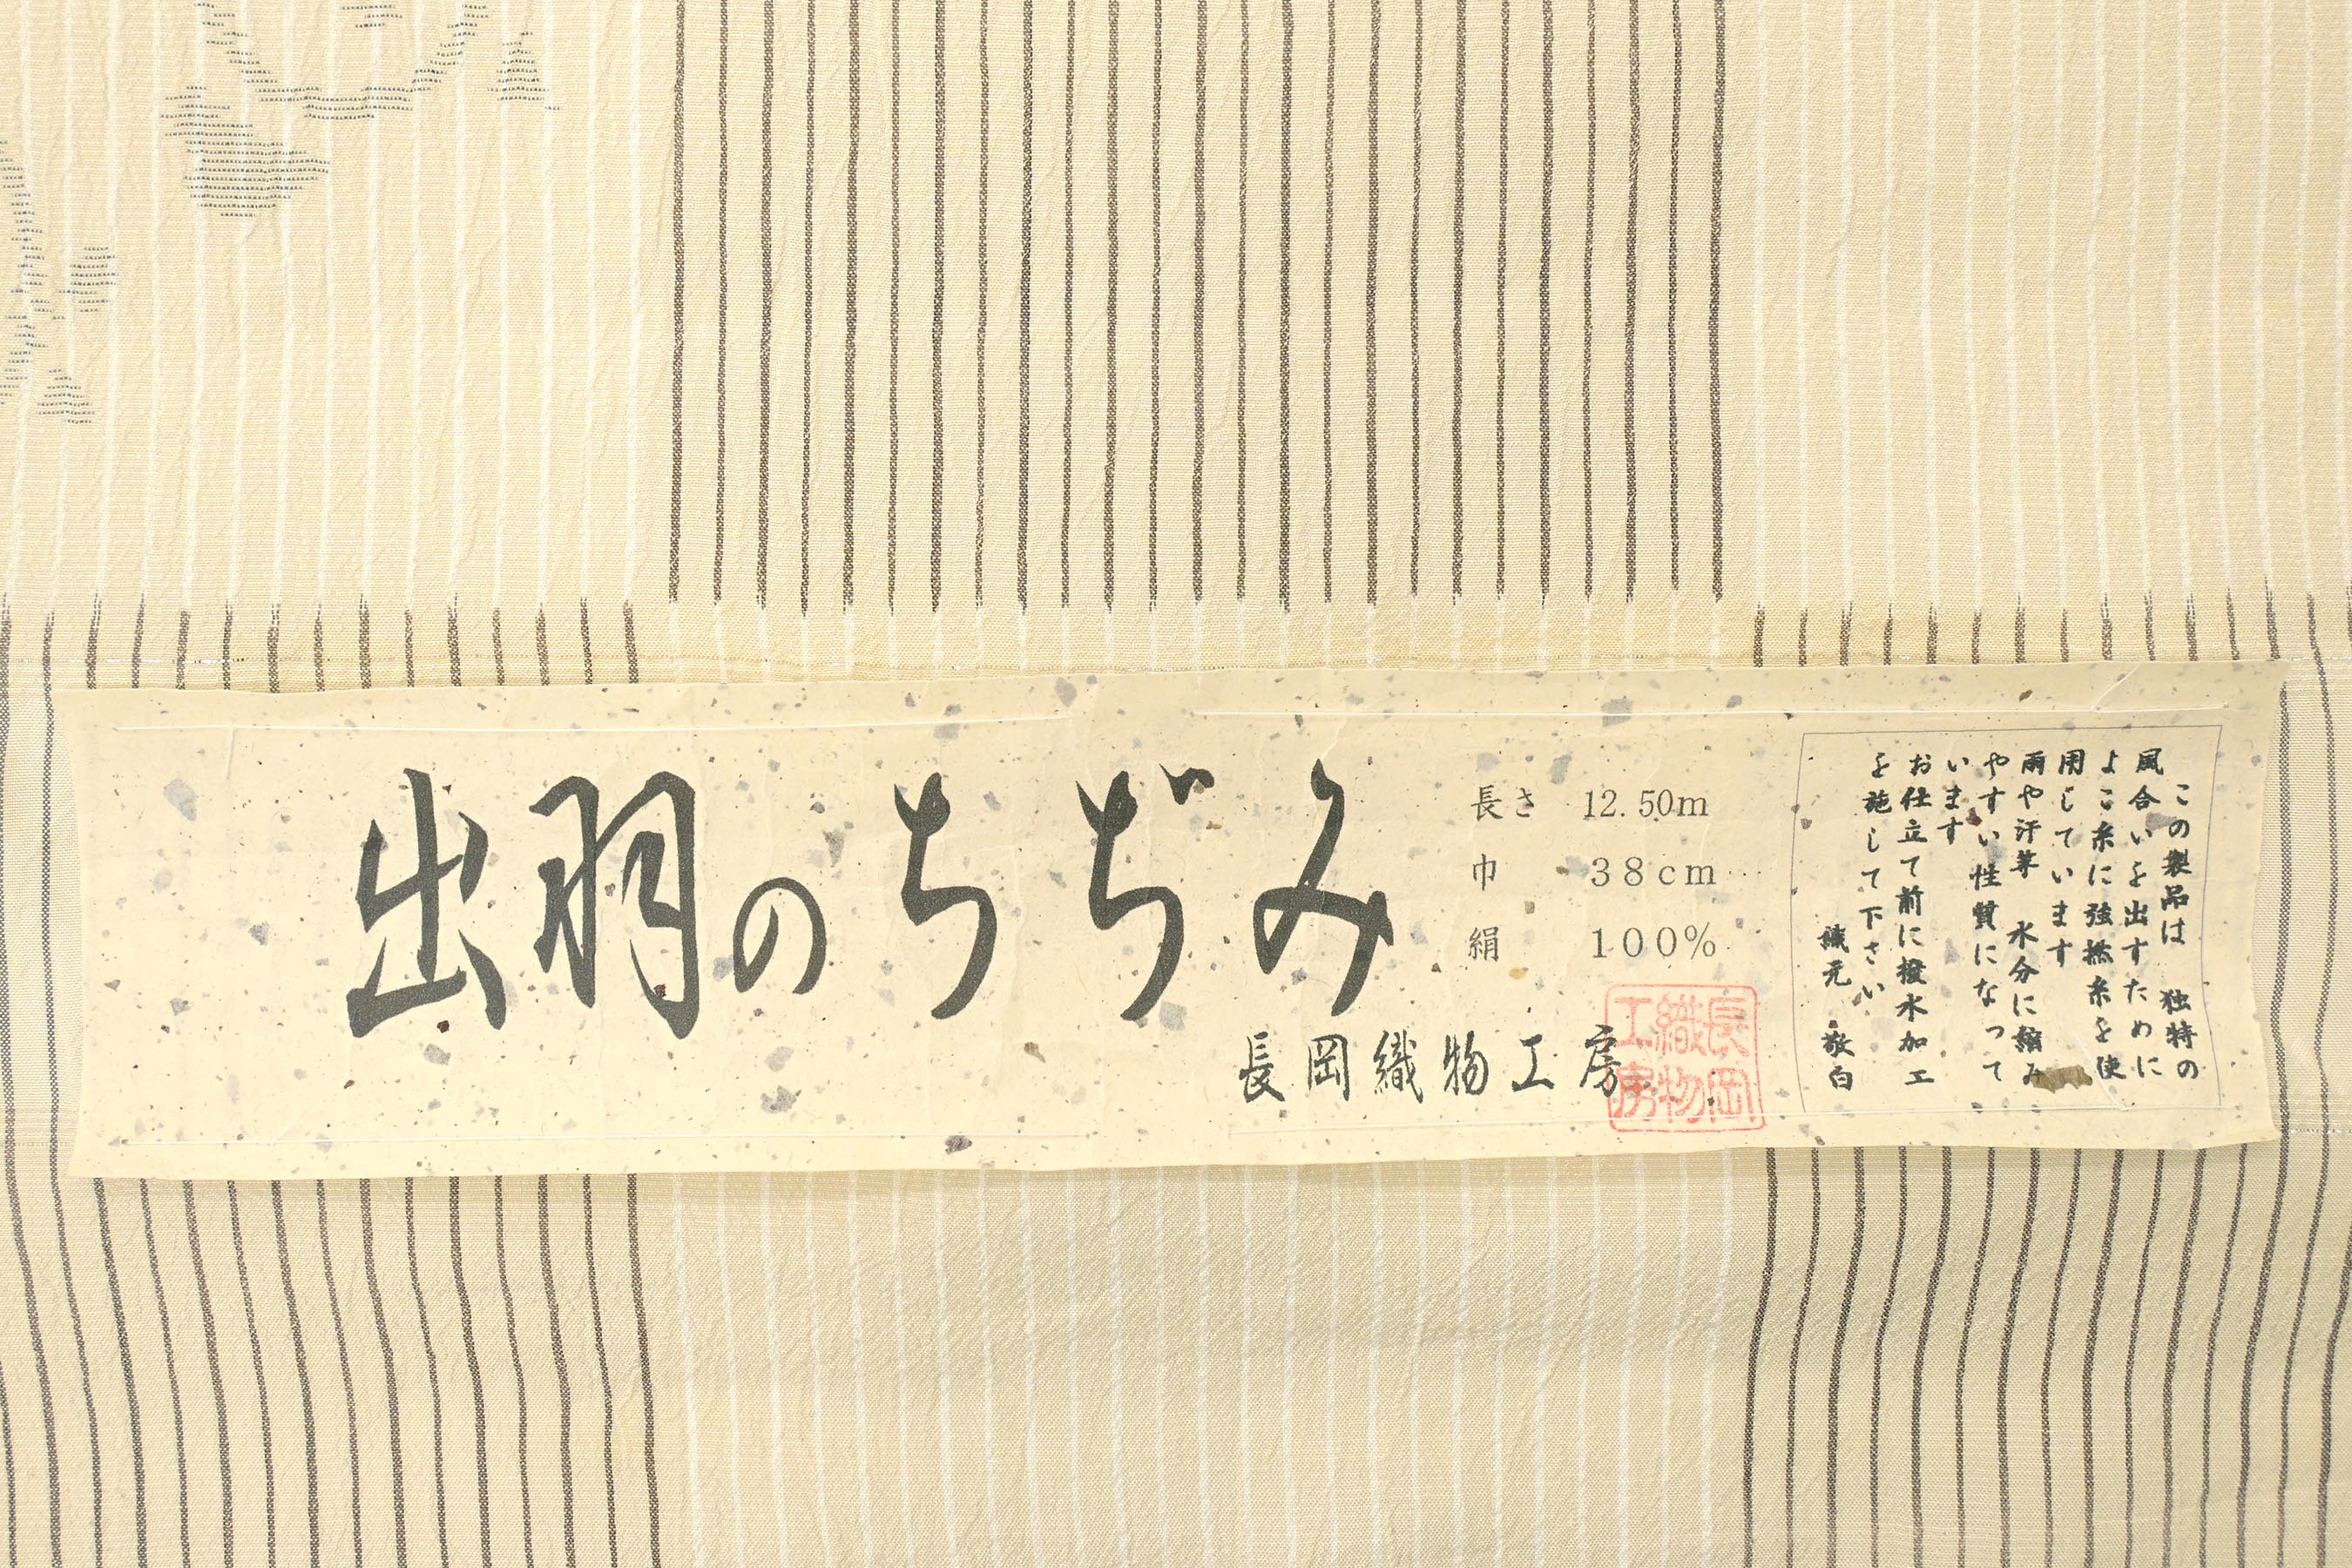 出羽のちぢみ
長さ 12.50m
巾 38cm
絹 100%
長岡織物工房
長岡
織物
工房
この製品は 独特の
風合いを出すために
よこ糸に強撚糸を使
用しています
雨や汗等 水分に縮み
やすい性質になって
います
お仕立て前に撥水加工
を施して下さい
織元 敬白